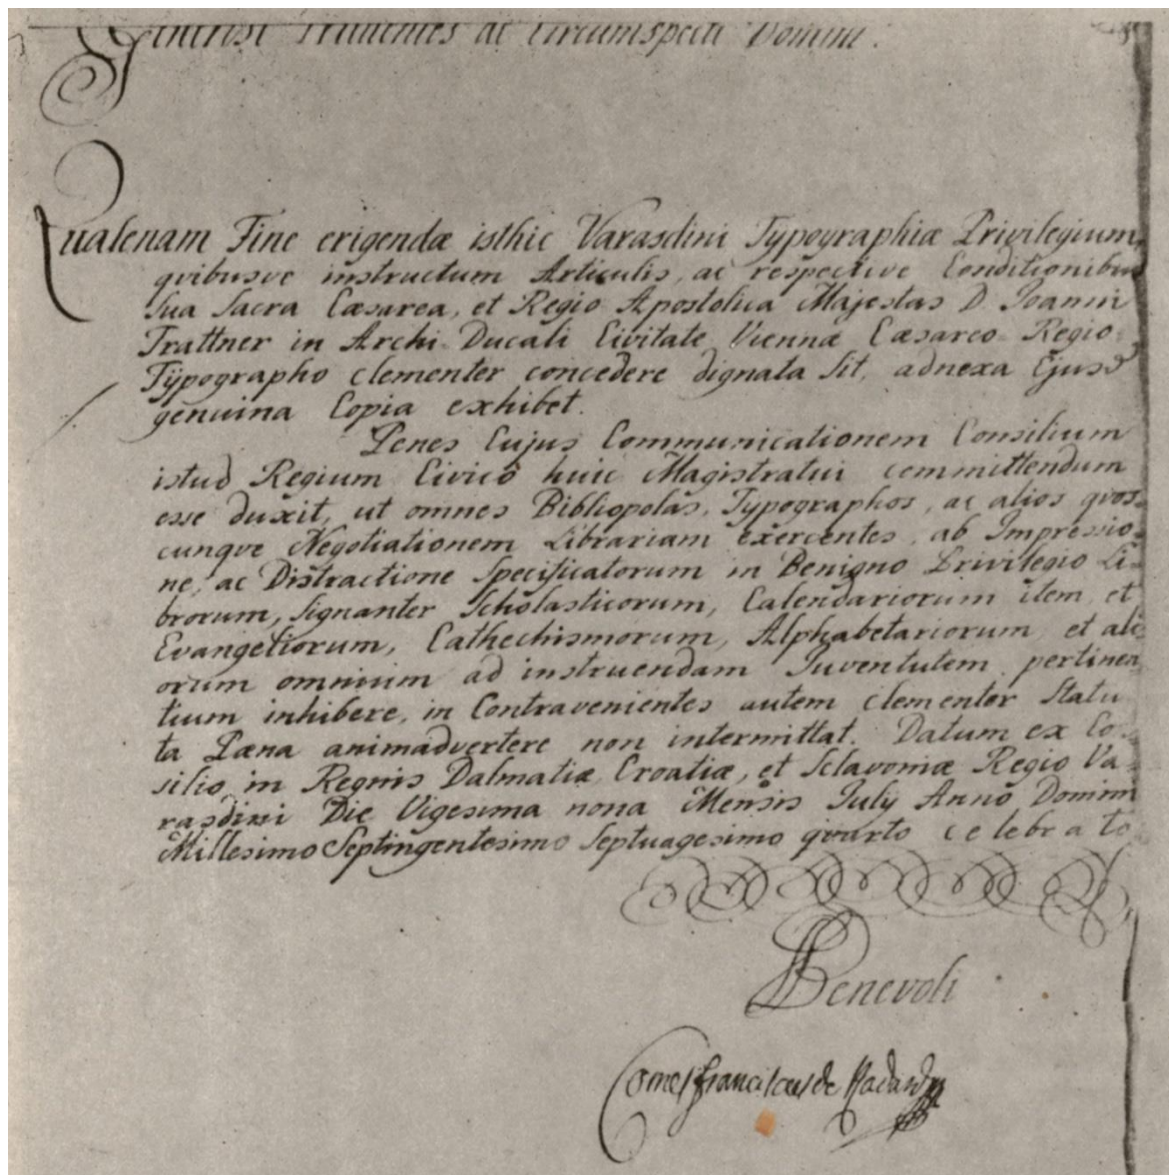 Prudentes ac Circumspecti Domini.
Qualenam Fine erigendæ isthic Varasdini Typographiæ Privilegium,
qvibusve instructum Articulis, ac respective Conditionibus
Sua Sacra Cæsarea, et Regio Apostolica Majestas D. Joanni
Trattner in Archi Ducali Civitate Viennæ Cæsareo Regio
Typographo clementer concedere dignata sit, adnexa Ejusd
genuina Copia exhibet.
Penes Cujus Communicationem Consilium
istud Regium Civico huic Magistratui committendum
esse duxit, ut omnes Bibliopolas, Typographos, ac alios qvos-
cunqve Negotiationem Librariam exercentes, ab Impressio-
ne, ac Distractione Specificatorum in Benigno Privilegio Li-
brorum, signanter Scholasticorum, Calendariorum item, et
Evangeliorum, Cathechismorum, Alphabetariorum, et ali-
orum omnium ad instruendam Juventutem pertinen
tium inhibere, in Contravenientes autem clementer Statu
ta Pæna animadvertere non intermittat. Datum ex Co
silio in Regnis Dalmatiæ Croatiæ, et Sclavoniæ Regio Va-
rasdini Die Vigesima nona Mensis July Anno Domini
Millesimo Septingentesimo Septuagesimo qvarto celebrato
Benevoli
Comes Franciscus de